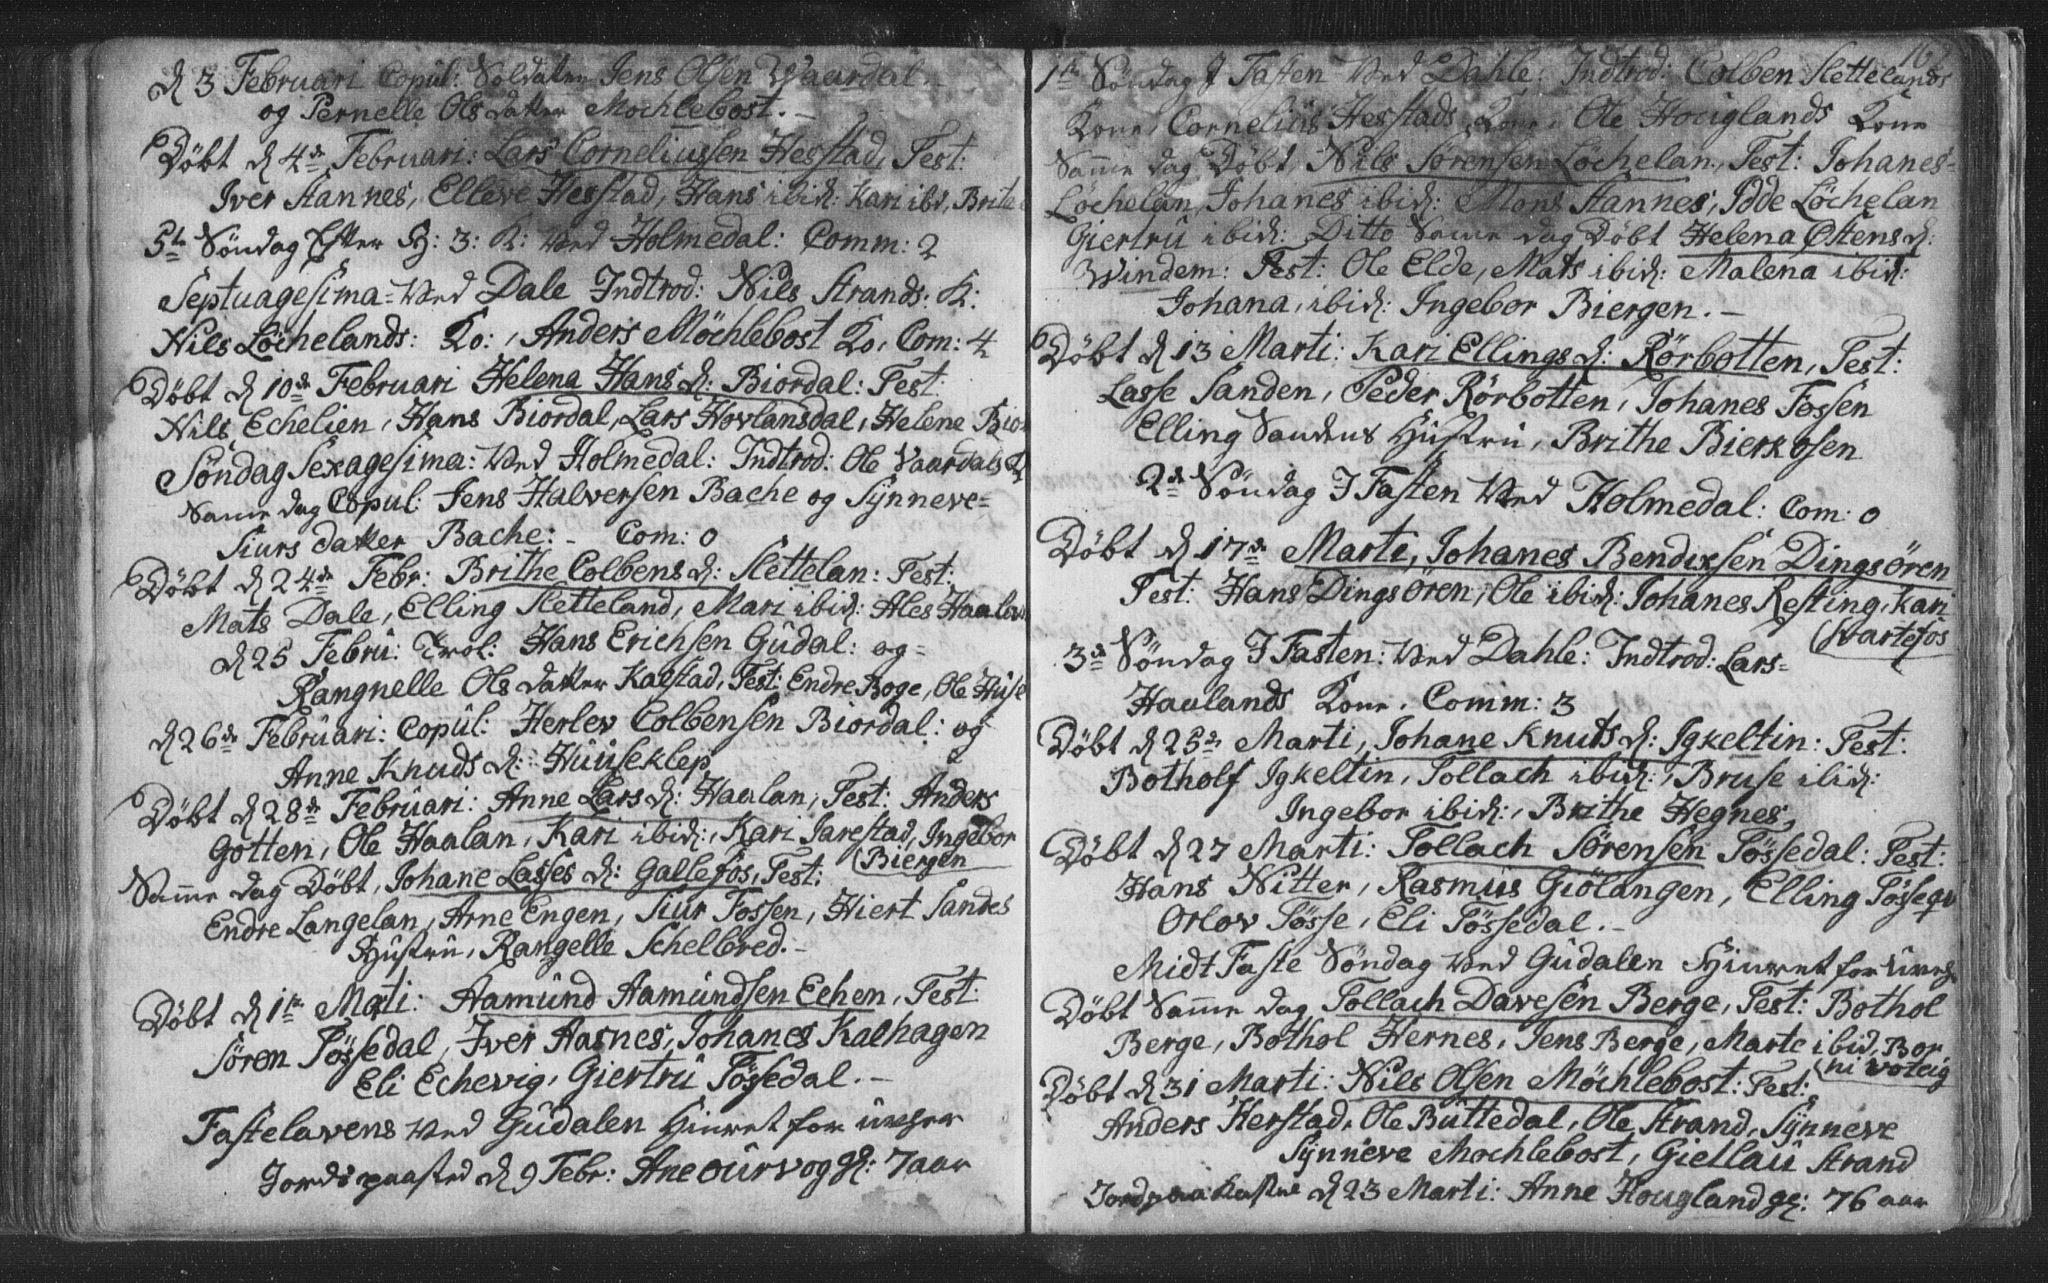 d 3 Februari Copul: Soldaten Jens Olsen Waardal.
og Pernelle Ols datter Mochlebost. –
Döbt d 4de Februari: Lars Corneliussen Hesstad, Test:
Iver Stannes, Elleve Hesstad, Hans ibid: Kari ibd, Brite
5te Söndag Efter H: 3: K: Ved Holmedal: Comm: 2
Septuagesima = Ved Dale Indtrod: Nils Strands: K:
Nils Löchelands: Ko:, Anders Möchlebost Ko, Com: 4
Döbt d 10de Februari Helena Hans d: Biordal: Test:
Nils Echelien, Hans Biordal, Lars Hovlansdal, Helene Bior
Söndag Sexagesima: Ved Holmedal: Indtrod: Ole Vaardals K
Samme dag Copul: Jens Halversen Bache og Synneve=
Siurs datter Bache: - Com: 0
Döbt d 24de Febr: Brithe Colbens d: Slettelan: Test:
Mats Dale, Elling Sletteland, Mari ibid: Ales Haalan
d 25 Febru: Trol: Hans Erichsen Gudal: og=
Rangnelle Ols datter Kalstad, Test: Endre Boge, Ole Huse
d 26de Februari: Copul: Herlev Colbensen Biordal: og
Anne Knuds d: Huuseklep
Döbt d 28de Februari: Anne Lars d: Haalan, Test: Anders
Gotten, Ole Haalan, Kari ibid:, Kari Jarestad, Ingebor
Biergen
Samme dag Döbt, Johane Lasses d: Gallefos, Test:
Endre Langelan, Arne Engen, Siur Fossen, Hiert Sandes
Hustru, Rangelle Schelbred. –
Döbt d 1te Marti: Aamund Aamundsen Echen, Test:
Sören Tössedal, Iver Aasnes, Johanes Kalhagen
Eli Echevig, Giertru Tössedal. –
Fastelavens Ved Gudalen Hinret for uveyer
Jords paasted d 9 Febr: Ane ourvog gl: 7 aar
1te Söndag I Fasten Ved Dahle: Indtrod: Colben Slettelands
Kone, Cornelius Hesstads Kone, Ole Houglands Kone
Samme dag Döbt, Nils Sörensen Löchelan, Test: Johanes=
Löchelan, Johanes ibid: Mons Stannes, Odde Löchelan
Giertru ibid: Ditto Samme dag Döbt Helena Ostens d:
Windem: Test: Ole Elde, Mats ibid: Malena ibid:
Johana, ibid: Ingebor Biergen. –
Döbt d 13 Marti: Kari Ellings d: Rörbotten, Test:
Lasse Sanden, Peder Rörbotten, Johanes Fossen
Elling Sandens Hustru, Brithe Bierkosen
2de Söndag I Fasten Ved Holmedal: Com: 0
Döbt d 17de Marti, Johanes Bendixsen Dingsören
Test: Hans Dingsören, Ole ibid: Johanes Resting, Kari
Svartefos
3de Söndag I Fasten: Ved Dahle: Indtrod: Lars=
Haalands Kone. Comm: 3
Döbt d 25de Marti, Johane Knuts d: Igkeltin: Test:
Botholf Igkeltin, Tollach ibid:, Bruse ibid:
Ingebor ibid:, Brithe Hegnes,
Döbt d 27 Marti: Tollach Sörensen Tössedal: Test:
Hans Nitter, Rasmus Giölangen, Elling Tösse
Orlov Tösse, Eli Tössedal. –
Midt Faste Söndag Ved Gudalen Hinret for
Döbt Samme dag Tollach Davesen Berge, Test: Bothol
Berge, Bothol Hernes, Jens Berge, Marte ibid, Bor
ni voteig
Döbt d 31 Marti: Nils Olsen Möchlebost: Test:
Anders Herstad, Ole Buttedal, Ole Strand, Synneve
Synneve Mochlebost, Giellau Strand
Jord paa Kastne d 23 Marti: Anne Hougland gl: 76 aar